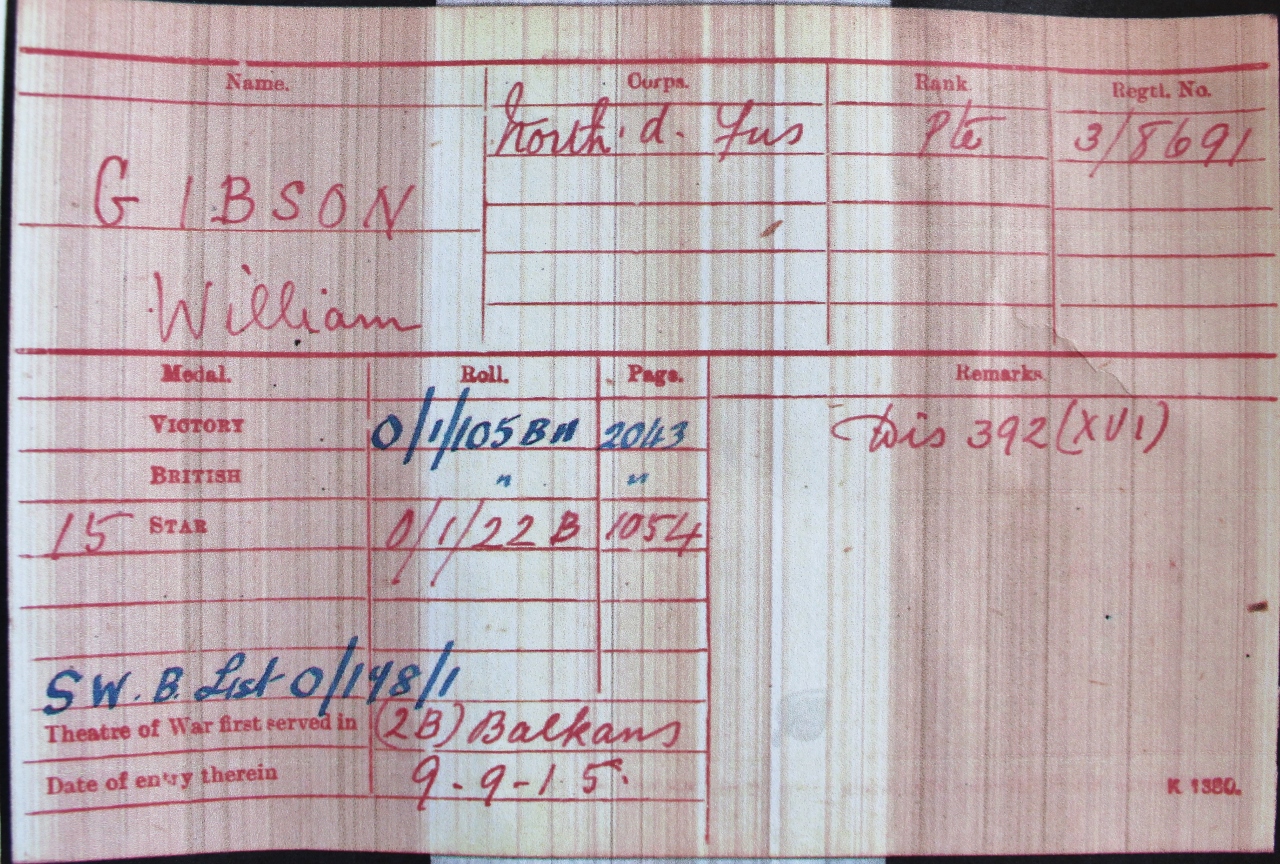 Name. Corps. Rank Regtl. No.
North'd. Fus Pte 3/8691
GIBSON
William
Medal. Roll. Page. Remarks
VICTORY 0/1/105 Bn 2043 Dis 392 (XVI)
BRITISH " "
15 STAR 0/1/22 B 1054
S.W.B. List 0/148/1
Theatre of War first served in (2B) Balkans
Date of entry therein 9-9-15.
K 1380.